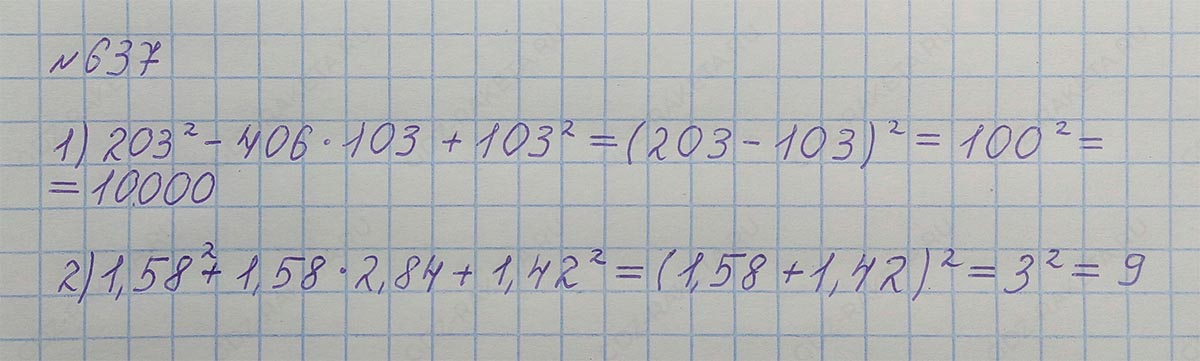 №637
1) 203² - 406 · 103 + 103² = (203 - 103)² = 100² =
= 10000
2) 1,58² + 1,58 · 2,84 + 1,42² = (1,58 + 1,42)² = 3² = 9